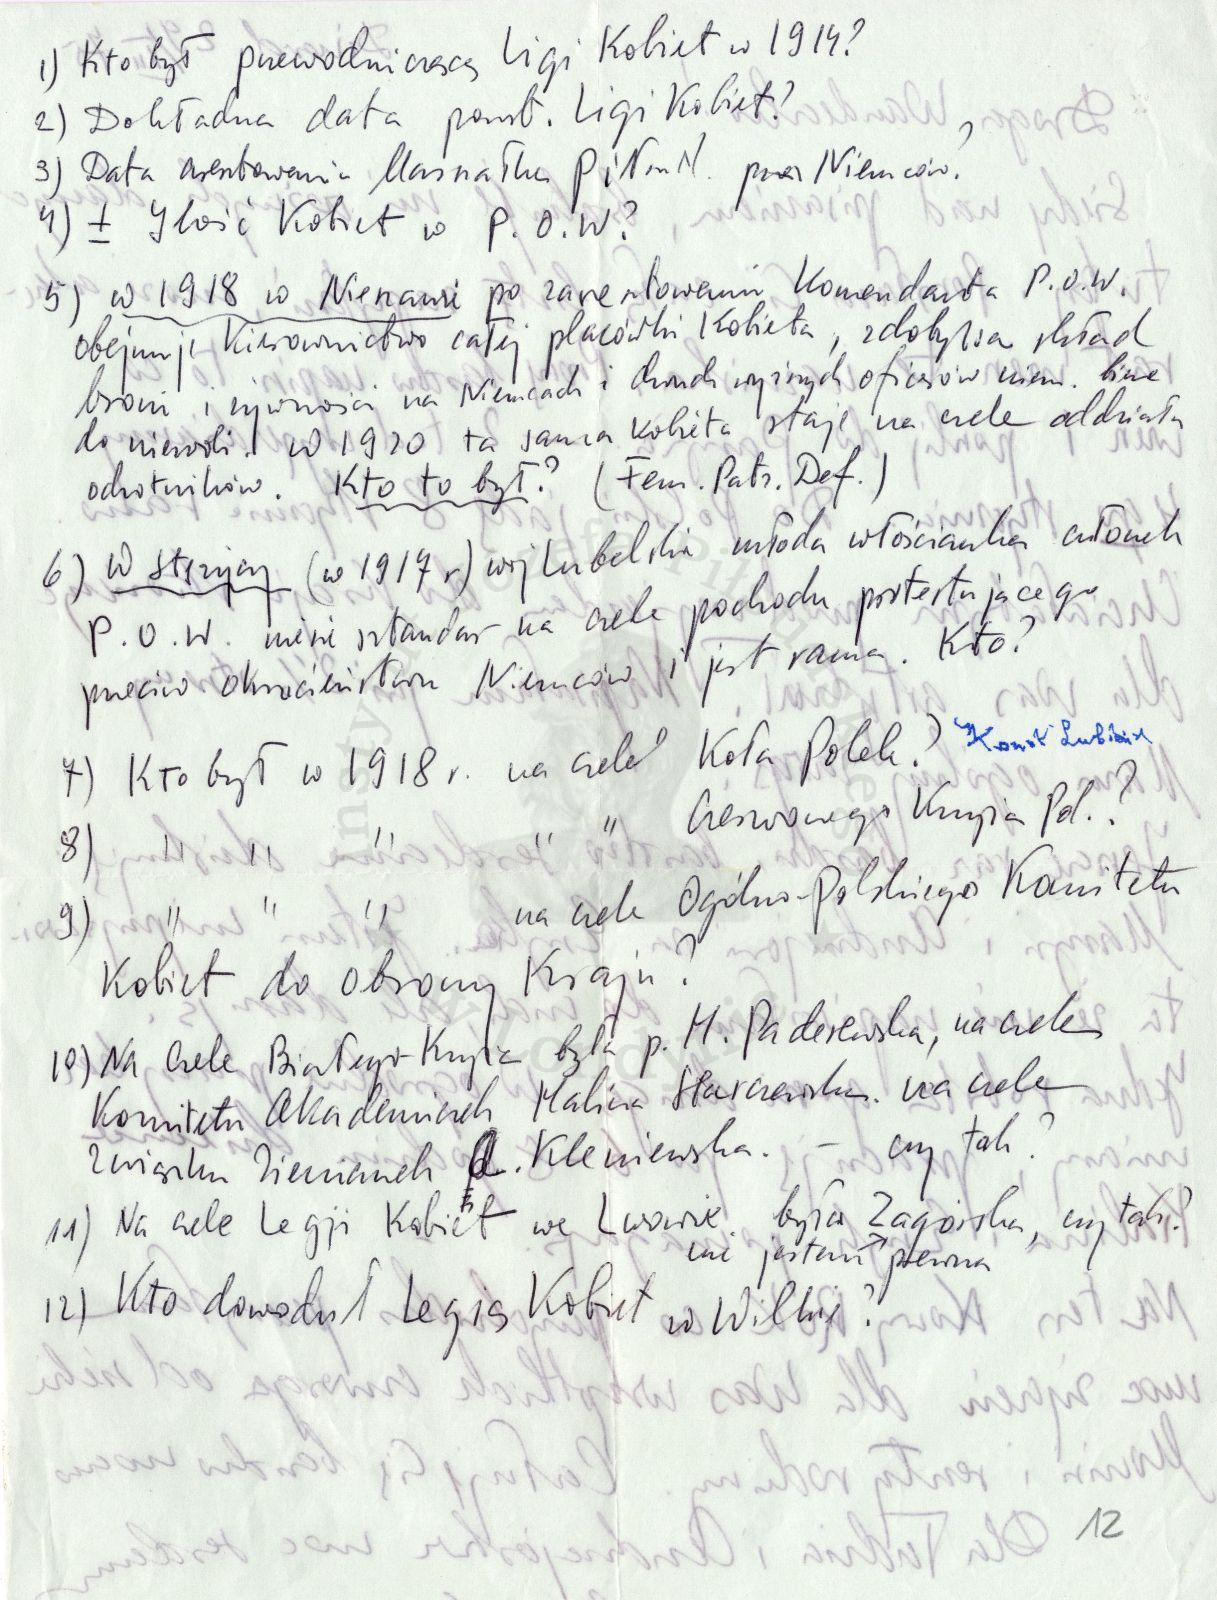 1) Kto był przewodniczącą Ligi Kobiet w 1914?
2) Dokładna data powst. Ligi Kobiet?
3) Data aresztowania Marszałka Piłsud. przez Niemców?
4) ± Ilość Kobiet w P.O.W.?
5) w 1918 w Nieszawie po zaresztowaniu Komendanta P.O.W.
obejmuje Kierownictwo całej placówki Kobieta, zdobywa skład
broni i żywności na Niemcach i dwuch wyższych oficerów niem. bierze
do niewoli. W 1920 ta sama kobieta staje na czele oddziału
ochotników. Kto to był? (Fem. Patr. Def.)
6) W Stężycy (w 1917 r) woj Lubelskie młoda włościanka członek
P.O.W. niesie sztandar na czele pochodu protestującego
przeciw okrucieństwu Niemców i jest ranna. Kto?
7) Kto był w 1918 r. na czele Koła Polek?
8) " " " " " Czerwonego Krzyża Pol.?
9) " " " na czele Ogólno-Polskiego Komitetu
Kobiet do Obrony Kraju?
10) Na czele Białego-Krzyża była p. H. Paderewska, na czele
Komitetu Akademiczek Halina Starczewska. na czele
Związku Ziemianek Kleniewska. – czy tak?
11) Na czele Legji Kobiet we Lwowie była Zagórska, czy tak?
nie jestem pewna
12) Kto dowodził Legią Kobiet w Wilnie?
12